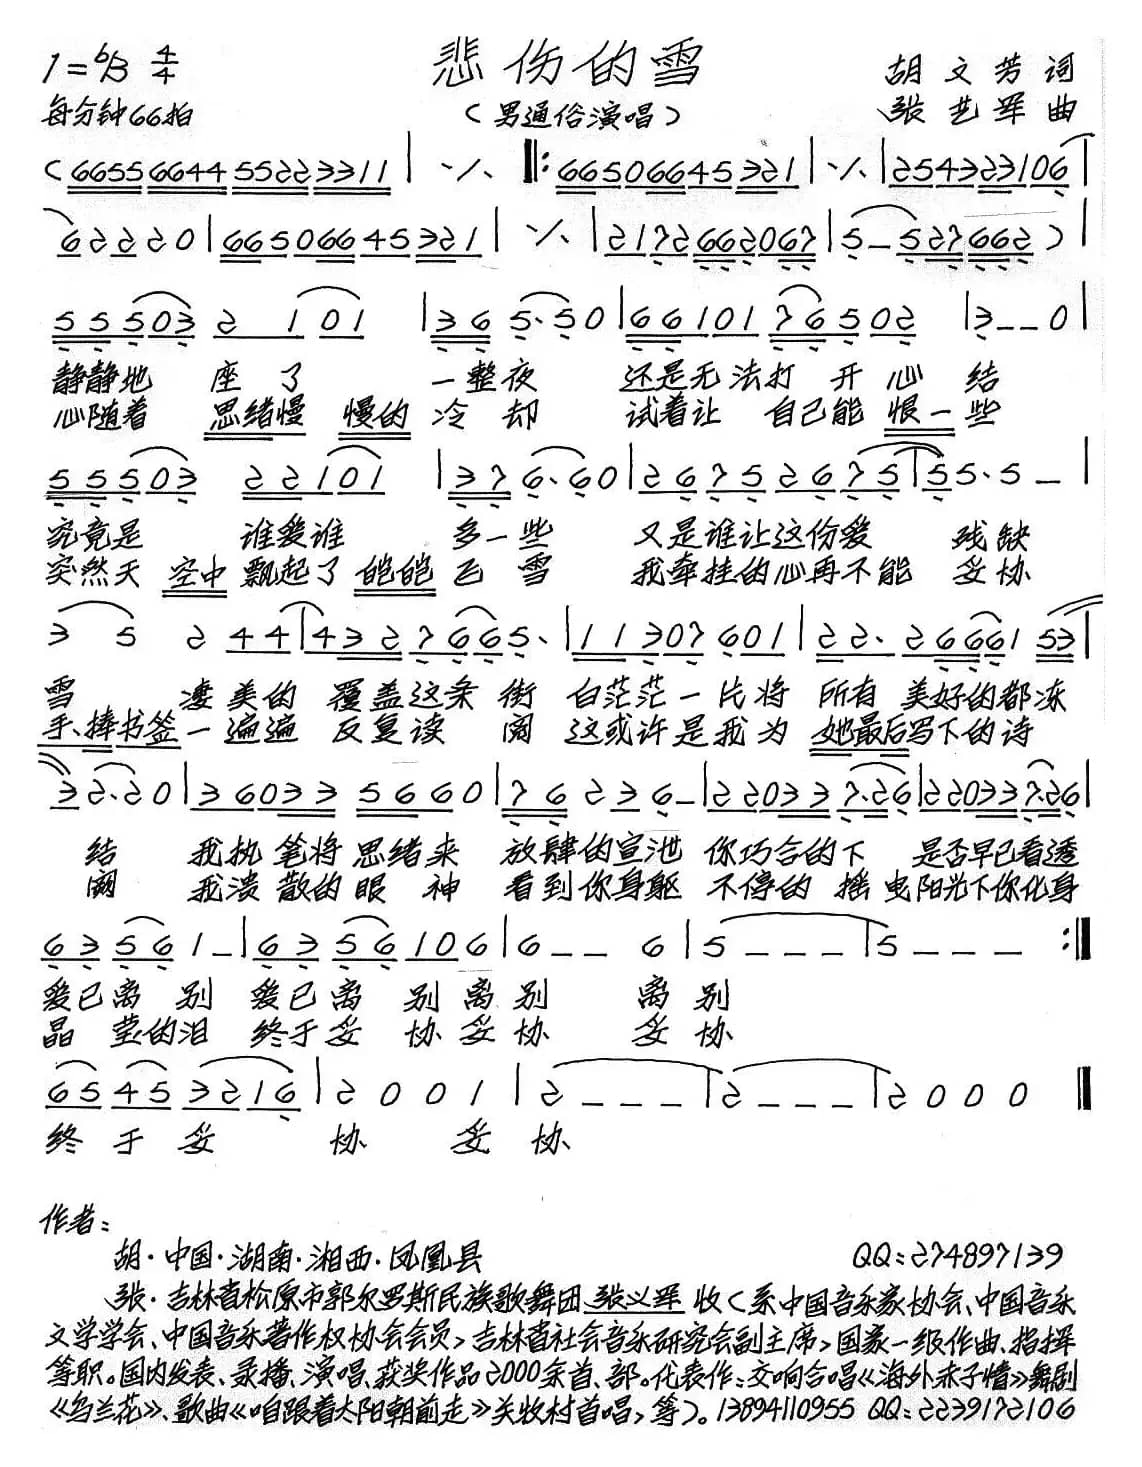 1=♭B 4/4 悲伤的雪 胡文芳 词
每分钟66拍 (男通俗演唱) 张艺军 曲
(6655 6644 5522 3311 | ٪ ‖: 6650 6645 321 | ٪ | 2543 23106 |
6 2 2 2 0 | 6650 6645 321 | ٪ | 2172 662067 | 5 – 527662 ) |
5 5 503 2 1 101 | 3 6 5· 50 | 66101 76502 | 3 – – 0 |
静静地 座了 一整夜 还是无法打开心结
心随着 思绪慢 慢的冷却 试着让 自己能 恨一些
5 5 503 22101 | 37 6· 60 | 2675 2675 | 55· 5 – |
究竟是 谁爱谁 多一些 又是谁让这份爱 残缺
突然天 空中飘起了 皑皑飞雪 我牵挂的心再不能 妥协
3 5 2 44 | 432 7665· | 11307 601 | 22· 26661 53 |
雪 凄美的 覆盖这条街 白茫茫一片将 所有美好的都冻
手、捧书签一遍遍 反复读阅 这或许是我为 她最后写下的诗
3 2· 20 | 36033 56660 | 76 23 6 – | 22033 7·26 | 22033 7·26 |
结 我执笔将思绪来 放肆的宣泄 你巧合的下 是否早已看透
阕 我溃散的眼神 看到你身躯 不停的摇曳阳光下你化身
63 56 1 – | 63 56 106 | 6 – – 6 | 5 – – – | 5 – – – :‖
爱已离别 爱已离 别离别 离别
晶莹的泪 终于妥 协妥协 妥协
65 45 3216 | 2 0 0 1 | 2 – – – | 2 – – – | 2 0 0 0 ‖
终于妥 协 妥协
作者:
胡·中国·湖南·湘西·凤凰县 QQ:274897139
张·吉林省松原市郭尔罗斯民族歌舞团 张义军 收〈系中国音乐家协会、中国音乐
文学学会、中国音乐著作权协会会员,吉林省社会音乐研究会副主席,国家一级作曲、指挥
等职。国内发表、录播、演唱、获奖作品2000余首、部。代表作:交响合唱《海外赤子情》舞剧
《乌兰花》、歌曲《咱跟着太阳朝前走》关牧村首唱,等〉。13894110955 QQ:2239172106